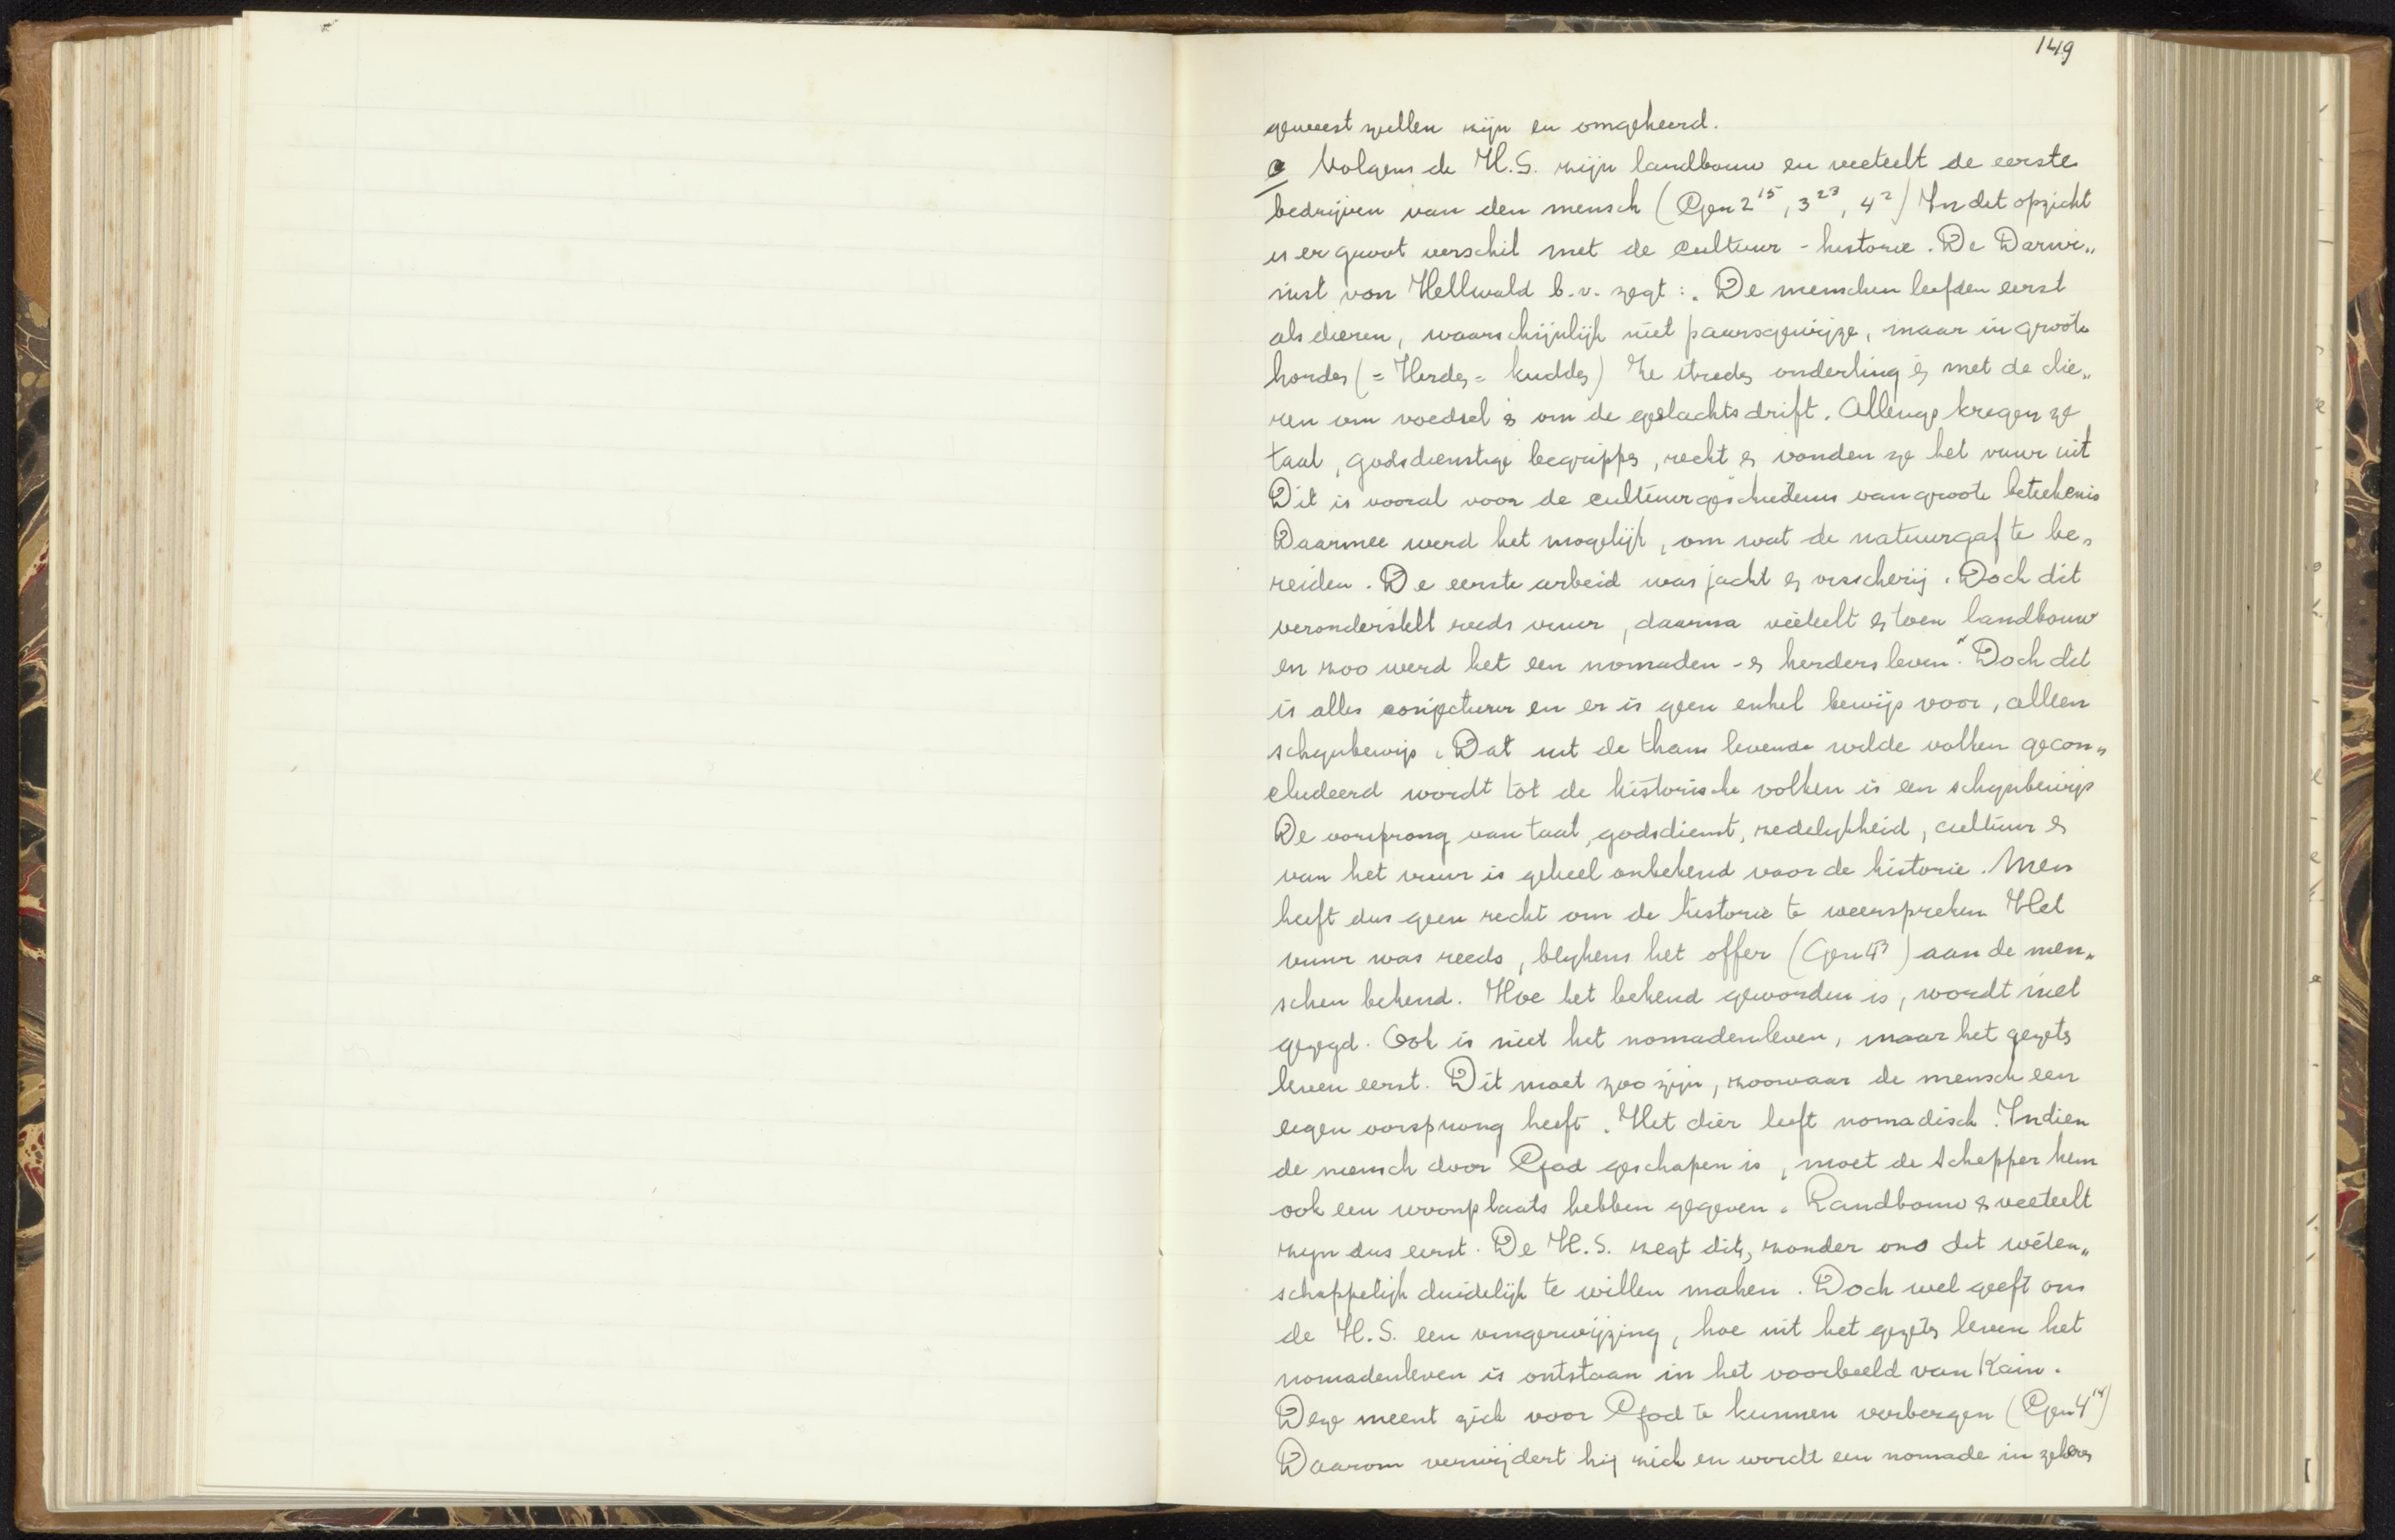 149
geweest zullen zijn en omgekeerd.
e Volgens de H.S. zijn landbouw en veeteelt de eerste
bedrijven van den mensch (Gen 2¹⁵, 3²³, 4²) In dit opzicht
is er groot verschil met de cultuur-historie. De Darwi„
nist von Hellwald b.v. zegt: „De menschen leefden eerst
als dieren, waarschijnlijk niet paarsgewijze, maar in groote
hordes (= Herdes = kuddes) Ze streden onderling en met de die„
ren om voedsel en om de geslachtsdrift. Allengs kregen ze
taal, godsdienstige begrippen, recht en vonden ze het vuur uit
Dit is vooral voor de cultuurgeschiedenis van groote beteekenis
Daarmee werd het mogelijk, om wat de natuur gaf te be„
reiden. De eerste arbeid was jacht en visscherij. Doch dit
veronderstelt reeds vuur, daarna veeteelt en toen landbouw
en zoo werd het een nomaden- en herdersleven". Doch dit
is alles conjecturer en er is geen enkel bewijs voor, alleen
schijnbewijs. Dat uit de thans levende wilde volken gecon„
cludeerd wordt tot de historische volken is een schijnbewijs
De oorsprong van taal, godsdienst, zedelijkheid, cultuur en
van het vuur is geheel onbekend voor de historie. Men
heeft dus geen recht om de historie te weerspreken Het
vuur was reeds, blijkens het offer (Gen 4³) aan de men„
schen bekend. Hoe het bekend geworden is, wordt niet
gezegd. Ook is niet het nomadenleven, maar het gezeten
leven eerst. Dit moet zoo zijn, zoowaar de mensch een
eigen oorsprong heeft. Het dier leeft nomadisch. Indien
de mensch door God geschapen is, moet de Schepper hem
ook een woonplaats hebben gegeven. Landbouw en veeteelt
zijn dus eerst. De H.S. zegt dit, zonder ons dit weten„
schappelijk duidelijk te willen maken. Doch wel geeft ons
de H.S. een vingerwijzing, hoe uit het gezeten leven het
nomadenleven is ontstaan in het voorbeeld van Kain.
Deze meent zich voor God te kunnen verbergen (Gen 4¹⁴)
Daarom verwijdert hij zich en wordt een nomade in zekeren